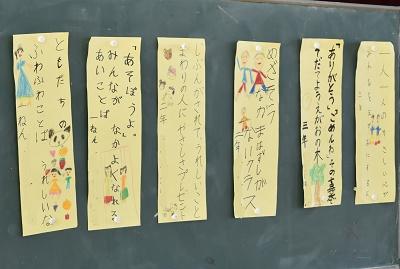 一人一人の
「ありがとう」「ごめんね」その言葉で
そだてようえがおの木
三年
めざそう
なかまはずしが
ないクラス
二年
じぶんがされて、うれしいこと
まわりの人にやさしさプレゼント
二年
「あそぼうよ。」
みんながなかよくなれる
あいことば
一ねん
ともだちの
ふわふわことばうれしいな
一ねん